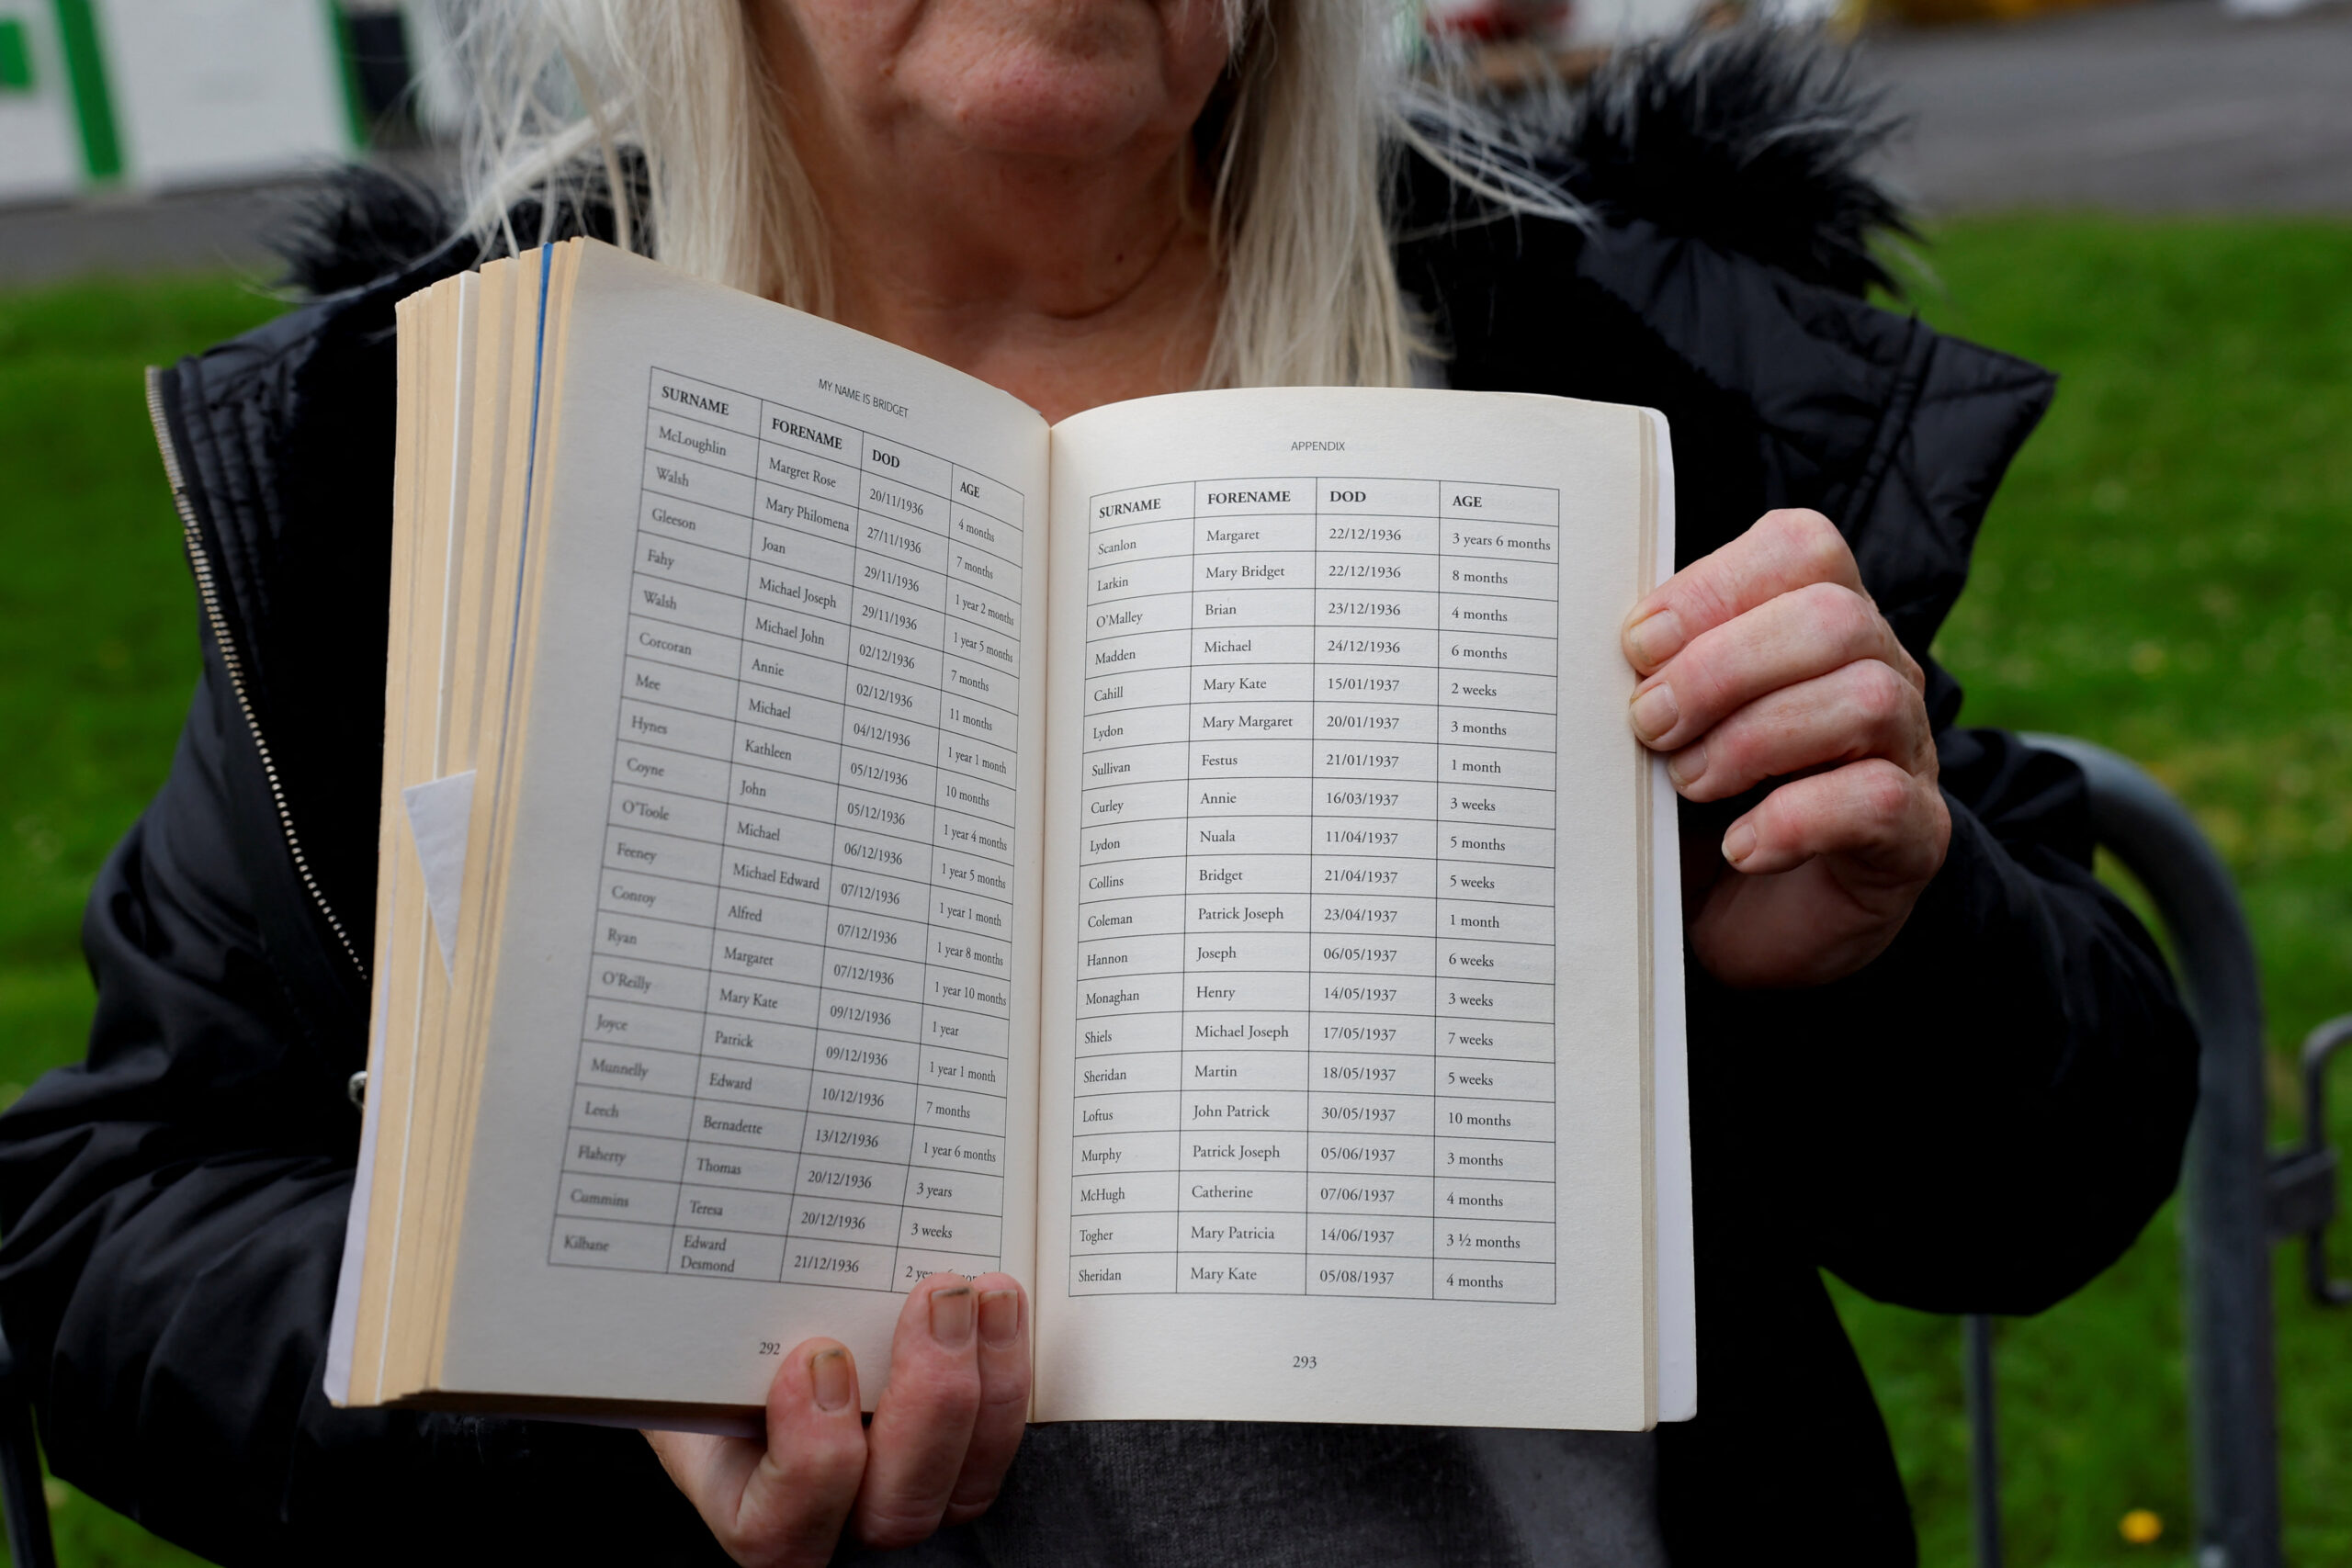 MY NAME IS BRIDGET
SURNAME FORENAME DOD AGE
McLoughlin Margret Rose 20/11/1936 4 months
Walsh Mary Philomena 27/11/1936 7 months
Gleeson Joan 29/11/1936 1 year 2 months
Fahy Michael Joseph 29/11/1936 1 year 5 months
Walsh Michael John 02/12/1936 7 months
Corcoran Annie 02/12/1936 11 months
Mee Michael 04/12/1936 1 year 1 month
Hynes Kathleen 05/12/1936 10 months
Coyne John 05/12/1936 1 year 4 months
O'Toole Michael 06/12/1936 1 year 5 months
Feeney Michael Edward 07/12/1936 1 year 1 month
Conroy Alfred 07/12/1936 1 year 8 months
Ryan Margaret 07/12/1936 1 year 10 months
O'Reilly Mary Kate 09/12/1936 1 year
Joyce Patrick 09/12/1936 1 year 1 month
Munnelly Edward 10/12/1936 7 months
Leech Bernadette 13/12/1936 1 year 6 months
Flaherty Thomas 20/12/1936 3 years
Cummins Teresa 20/12/1936 3 weeks
Kilbane Edward Desmond 21/12/1936 2
292
APPENDIX
SURNAME FORENAME DOD AGE
Scanlon Margaret 22/12/1936 3 years 6 months
Larkin Mary Bridget 22/12/1936 8 months
O'Malley Brian 23/12/1936 4 months
Madden Michael 24/12/1936 6 months
Cahill Mary Kate 15/01/1937 2 weeks
Lydon Mary Margaret 20/01/1937 3 months
Sullivan Festus 21/01/1937 1 month
Curley Annie 16/03/1937 3 weeks
Lydon Nuala 11/04/1937 5 months
Collins Bridget 21/04/1937 5 weeks
Coleman Patrick Joseph 23/04/1937 1 month
Hannon Joseph 06/05/1937 6 weeks
Monaghan Henry 14/05/1937 3 weeks
Shiels Michael Joseph 17/05/1937 7 weeks
Sheridan Martin 18/05/1937 5 weeks
Loftus John Patrick 30/05/1937 10 months
Murphy Patrick Joseph 05/06/1937 3 months
McHugh Catherine 07/06/1937 4 months
Togher Mary Patricia 14/06/1937 3 ½ months
Sheridan Mary Kate 05/08/1937 4 months
293